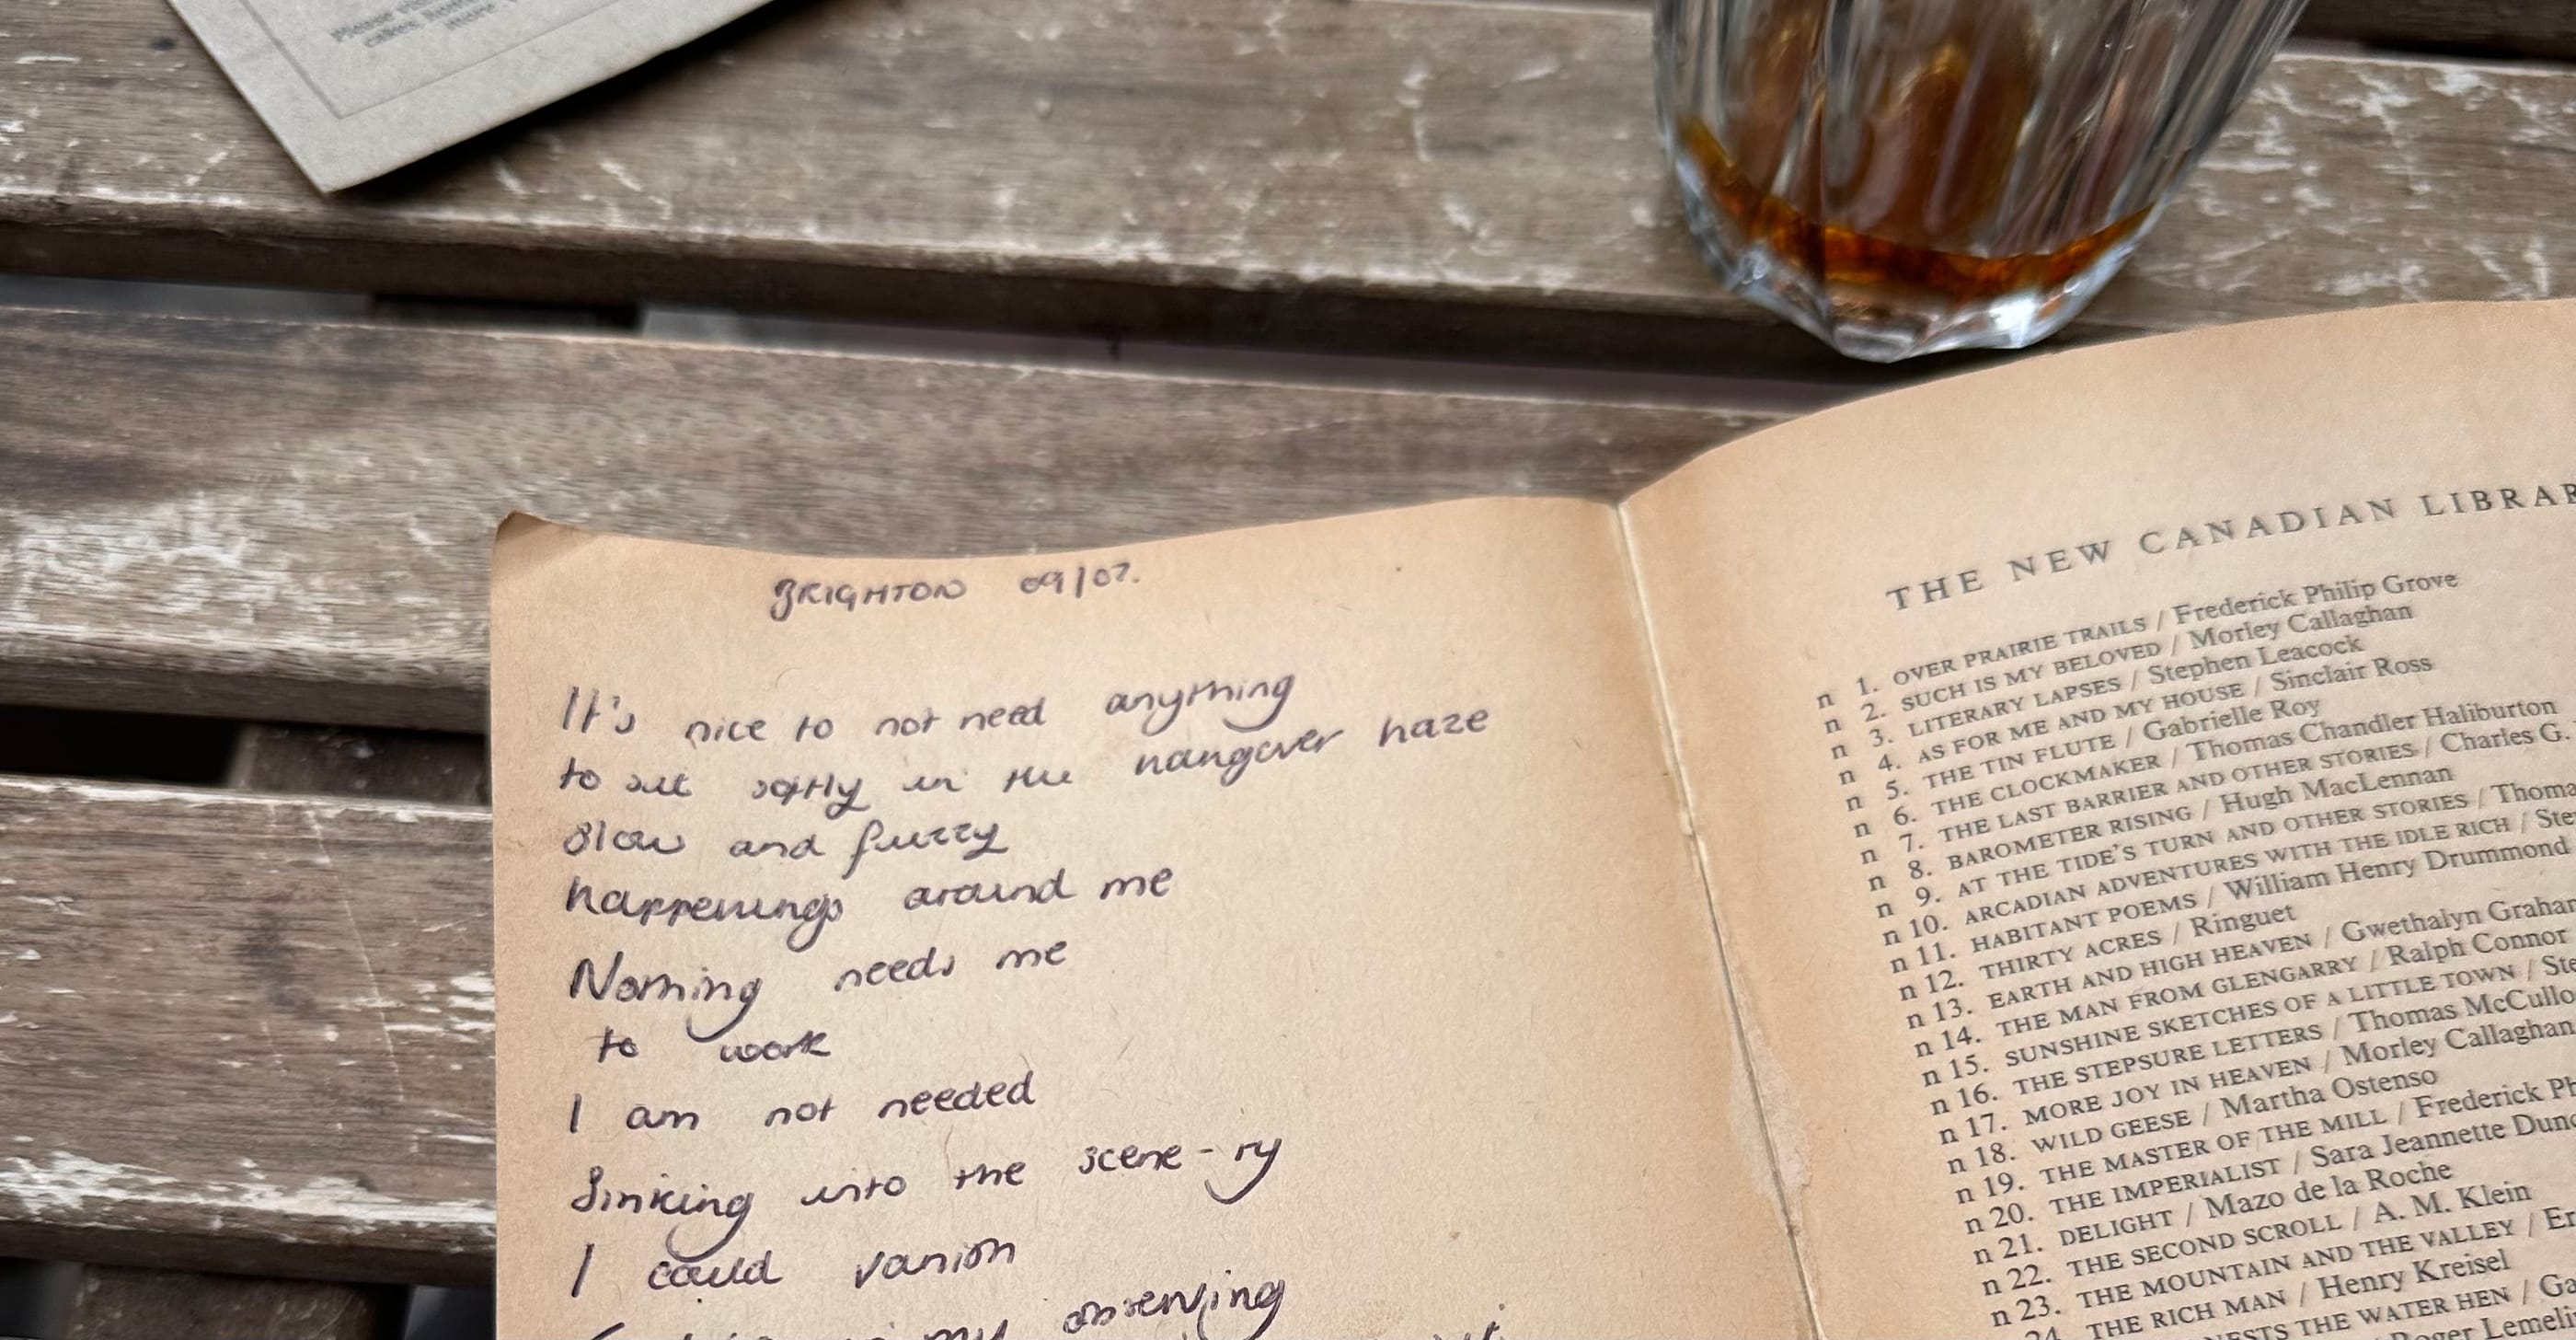 Please
cakes,
BRIGHTON 09/07.
It's nice to not need anything
to sit softly in the hangover haze
Slow and fuzzy
happenings around me
Nothing needs me
to work
I am not needed
Sinking into the scene-ry
I could vanish
in my observing
THE NEW CANADIAN LIBRAR
n 1. OVER PRAIRIE TRAILS / Frederick Philip Grove
n 2. SUCH IS MY BELOVED / Morley Callaghan
n 3. LITERARY LAPSES / Stephen Leacock
n 4. AS FOR ME AND MY HOUSE / Sinclair Ross
n 5. THE TIN FLUTE / Gabrielle Roy
n 6. THE CLOCKMAKER / Thomas Chandler Haliburton
n 7. THE LAST BARRIER AND OTHER STORIES / Charles G.
n 8. BAROMETER RISING / Hugh MacLennan
n 9. AT THE TIDE'S TURN AND OTHER STORIES / Thoma
n 10. ARCADIAN ADVENTURES WITH THE IDLE RICH / Ste
n 11. HABITANT POEMS / William Henry Drummond
n 12. THIRTY ACRES / Ringuet
n 13. EARTH AND HIGH HEAVEN / Gwethalyn Graham
n 14. THE MAN FROM GLENGARRY / Ralph Connor
n 15. SUNSHINE SKETCHES OF A LITTLE TOWN / Ste
n 16. THE STEPSURE LETTERS / Thomas McCullo
n 17. MORE JOY IN HEAVEN / Morley Callaghan
n 18. WILD GEESE / Martha Ostenso
n 19. THE MASTER OF THE MILL / Frederick Ph
n 20. THE IMPERIALIST / Sara Jeannette Dunc
n 21. DELIGHT / Mazo de la Roche
n 22. THE SECOND SCROLL / A. M. Klein
n 23. THE MOUNTAIN AND THE VALLEY / Er
24. THE RICH MAN / Henry Kreisel
NESTS THE WATER HEN / Ga
Roger Lemeli